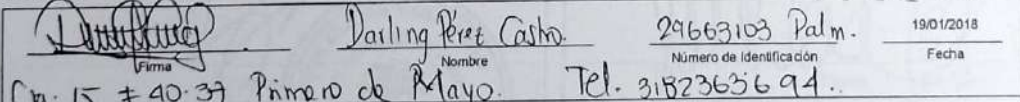 Darling Pérez Castro. 29663103 Palm. 19/01/2018
Firma Nombre Número de Identificación Fecha
Cra. 15 # 40-37 Primero de Mayo. Tel. 3182363694.